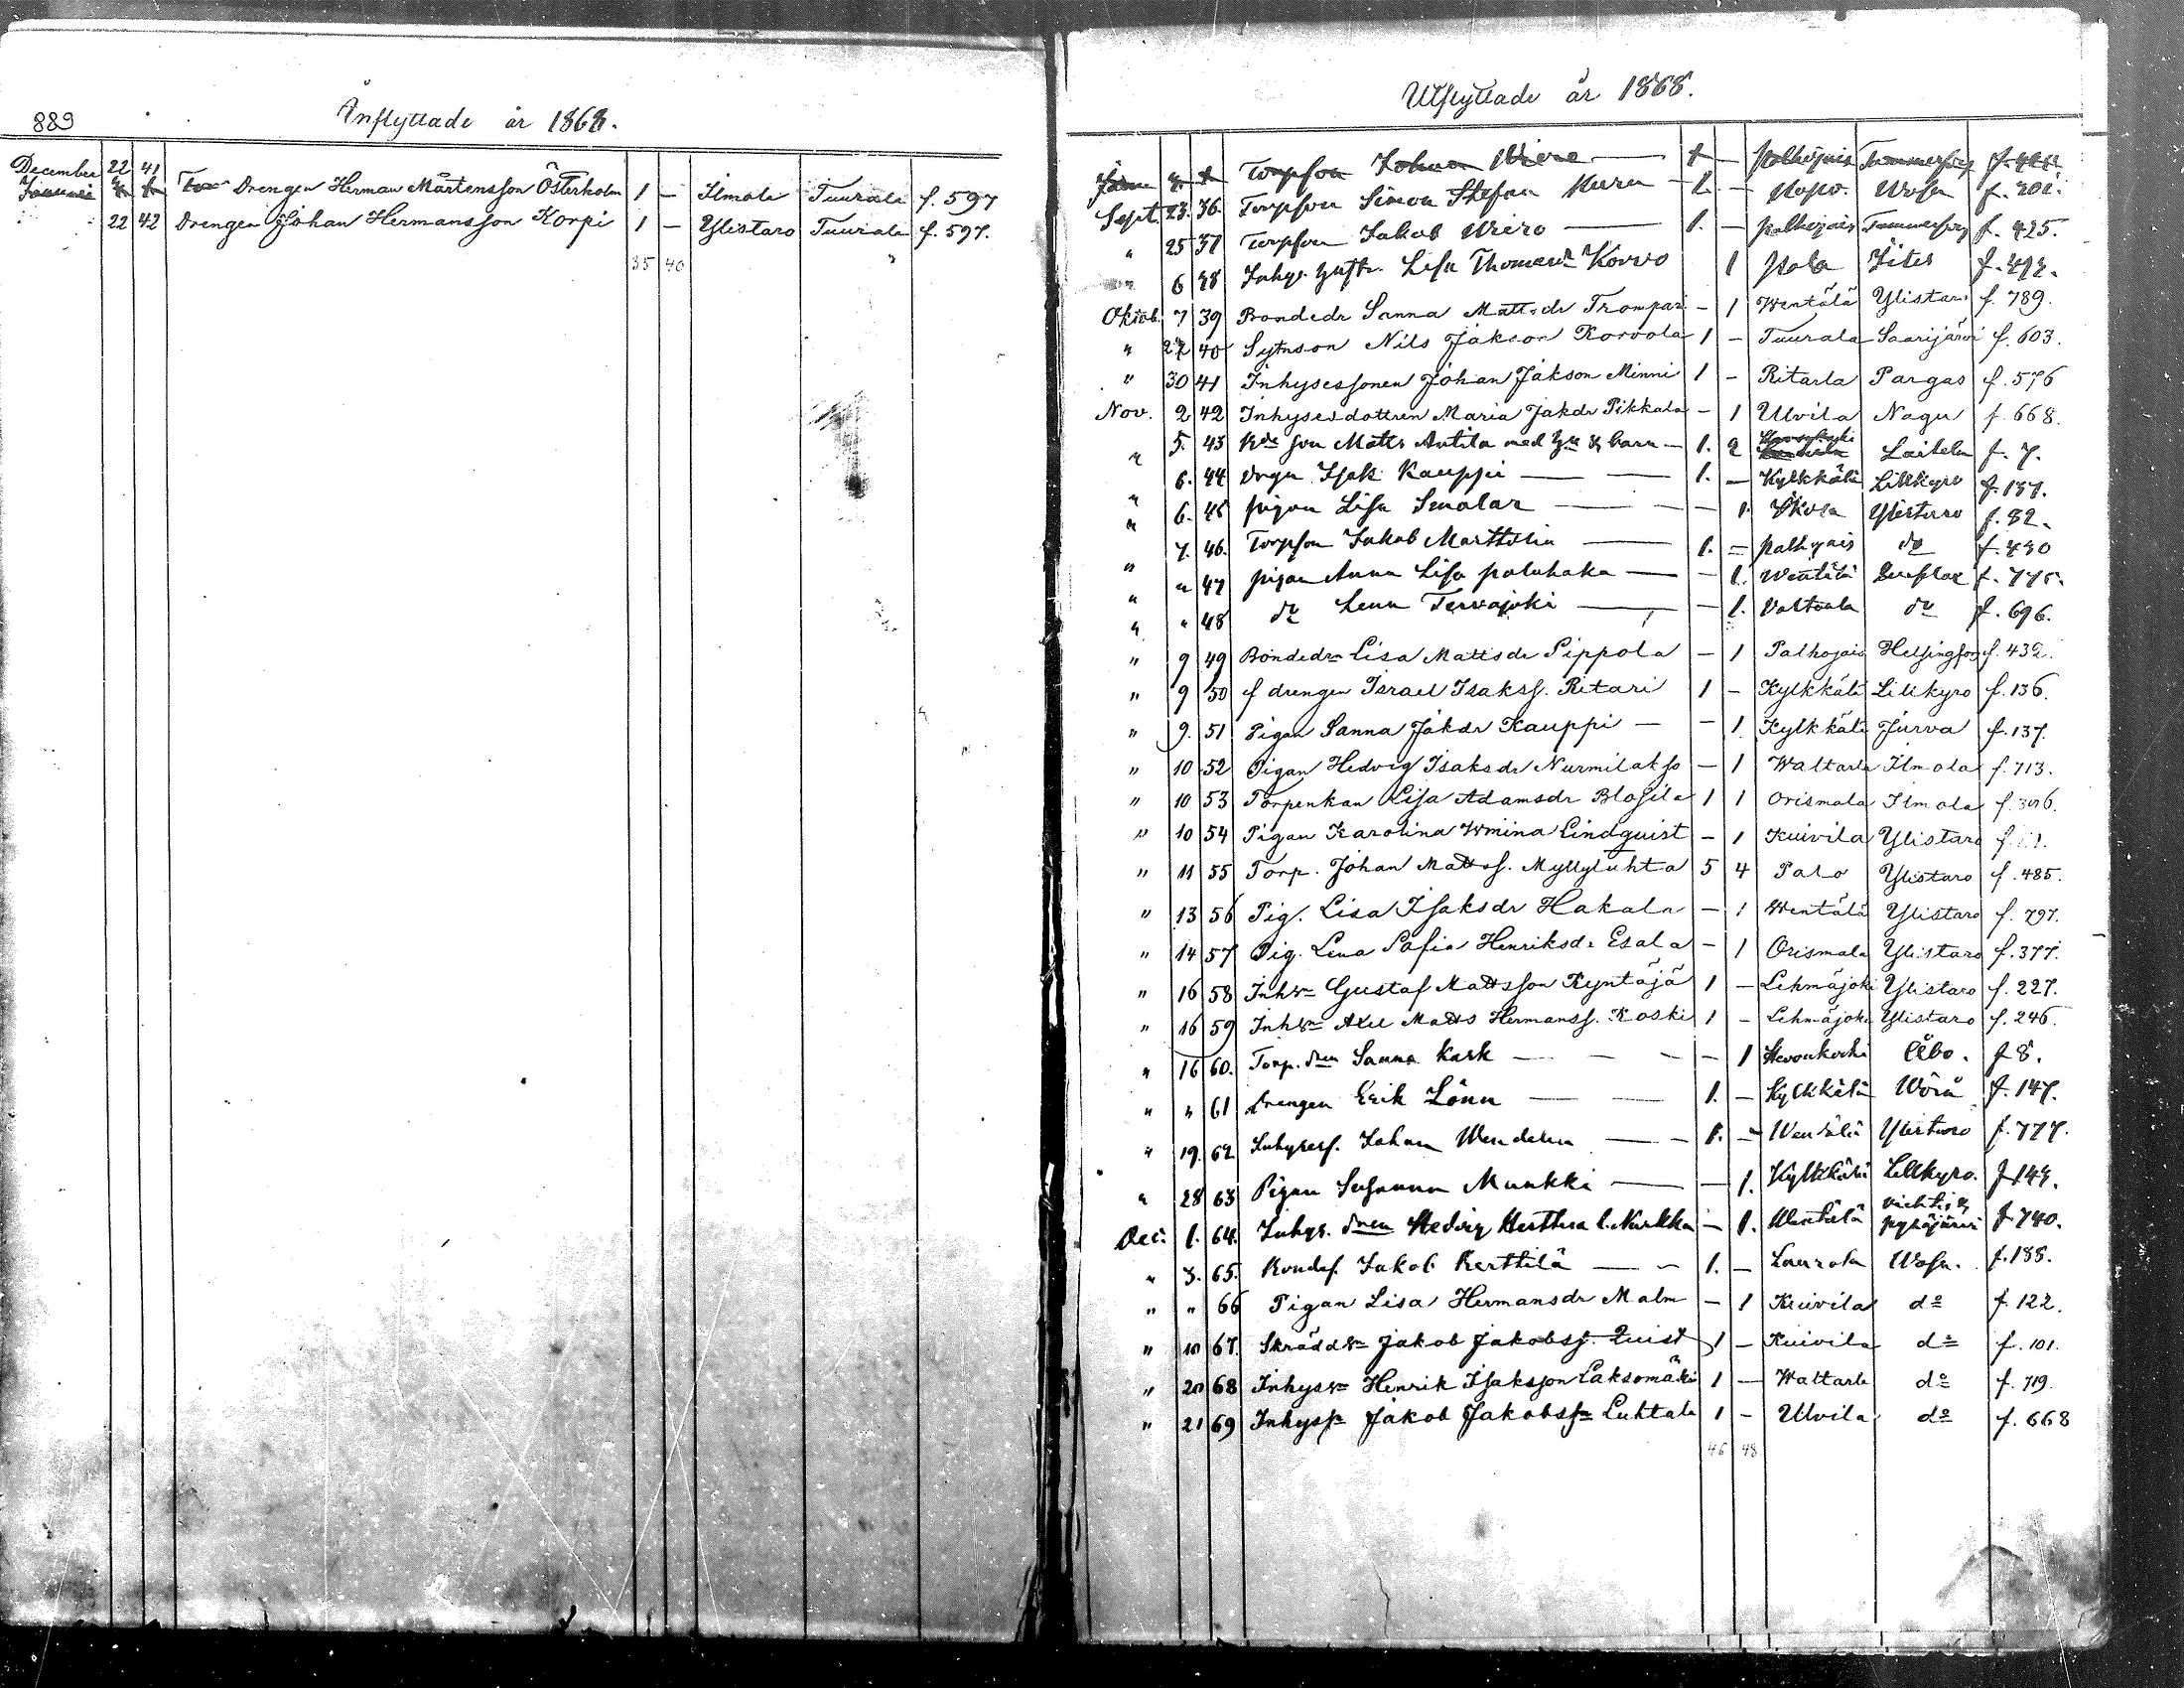 889
Inflyttade år 1868.
December 22 41 Drengen Herman Mårtensson Österholm 1 — Ilmola Tuurala f. 597
22 42 Drengen Johan Hermansson Korpi 1 — Ylistaro Tuurala f. 597.
35 40
Utflyttade år 1868.
Torpson Johan Wiero — Palhojais Tammerfors
Sept. 23. 36. Torpson Simon Stefan 1. — Wasa f. 202.
" 25 37 Torpson Jakob Wiero — 1. — Palhojais Tammerfors f. 425.
" 6 38 Lisa Thomasdr Korvo 1 f. 494.
Oktob. 7 39 Bondedr Sanna Mattsdr Trompari — 1 Wentälä Ylistaro f. 789.
" 27 40 Sytnson Nils Jakson Korvola 1 — Tuurala Saarijärvi f. 603.
" 30 41 Inhysessonen Johan Jakson Minni 1 — Ritarla Pargas f. 576
Nov. 2 42 Inhysesdottren Maria Jakdr Pikkala — 1 Ulvila Nagu f. 668.
" 5. 43 Matts Antila med & barn — 1. 2 Laihela f. 7.
" 6. 44 Drgn Isak Kauppi — 1. — Kylkkälä Lillkyro f. 137.
" 6. 45 pigan Lisa Smolar — 1 Ikola Ylistaro f. 82.
" 7. 46. Torpson Jakob Marttila — 1. — palhojais do f. 430
" " 47 pigan Anna Lisa paluhaka — 1. Wentälä f. 775.
" " 48 do Lena Tervajoki — 1. Valtarla do f. 696.
" 9 49 Bondedrn Lisa Mattsdr Pippola — 1 Palhojais Helsingfors f. 432.
" 9 50 f drengen Israel Isakss. Ritari 1 — Kylkkälä Lillkyro f. 136.
" 9. 51 Pigan Sanna Jakdr Kauppi — — 1 Kylkkälä Jurva f. 137.
" 10 52 Pigan Hedvig Isaksdr Nurmilakso — 1 Waltarla Ilmola f. 713.
" 10 53 Torpenkan Lisa Adamsdr Blosila 1 1 Orismala Ilmola
" 10 54 Pigan Karolina Wmina Lindquist — 1 Kuivila Ylistaro
" 11 55 Torp. Johan Mattss. Myllyluhta 5 4 Palo Ylistaro f. 485.
" 13 56 Pig. Lisa Isaksdr Hakala — 1 Wentälä Ylistaro f. 797.
" 14 57 Pig. Lena Sofia Henriksdr Esala — 1 Orismala Ylistaro f. 377.
" 16 58 Inhsn Gustaf Mattsson Kyntäjä 1 — Lehmäjoki Ylistaro f. 227.
" 16 59 Inhsn Axel Matts Hermanss. Koski 1 — Lehmäjoki Ylistaro f. 246.
" 16 60. Torp. dren Sanna Kark — — — 1 Hevonkoski Åbo. f 8.
" " 61 Drengen Erik Lönn — 1. — Kylkkälä Wörå f. 147.
" 19. 62. Inhysess. Johan Wendelin — 1. — Wentälä Ylistaro f. 777.
" 28 63 Pigan Susanna Munkki — 1. Kylkkälä Lillkyro. f 144.
Dec. 1. 64. Inhys. dren Hedvig Nurkka — 1. Wentälä Vichtis & pyhäjärvi f 740.
" 3. 65. Bondes. Jakob Kerttilä — 1. — Laurola Wasa. f. 188.
" " 66 Pigan Lisa Hermansdr Malm — 1 Kuivila do f. 122.
" 10 67. Skräddsn Jakob Jakobss. Quist 1 — Kuivila do f. 101.
" 20 68 Inhyssn Henrik Isaksson Laksomäki 1 — Waltarla do f. 719.
" 21 69 Inhyss Jakob Jakobssn Luhtala 1 — Ulvila do f. 668
46 48